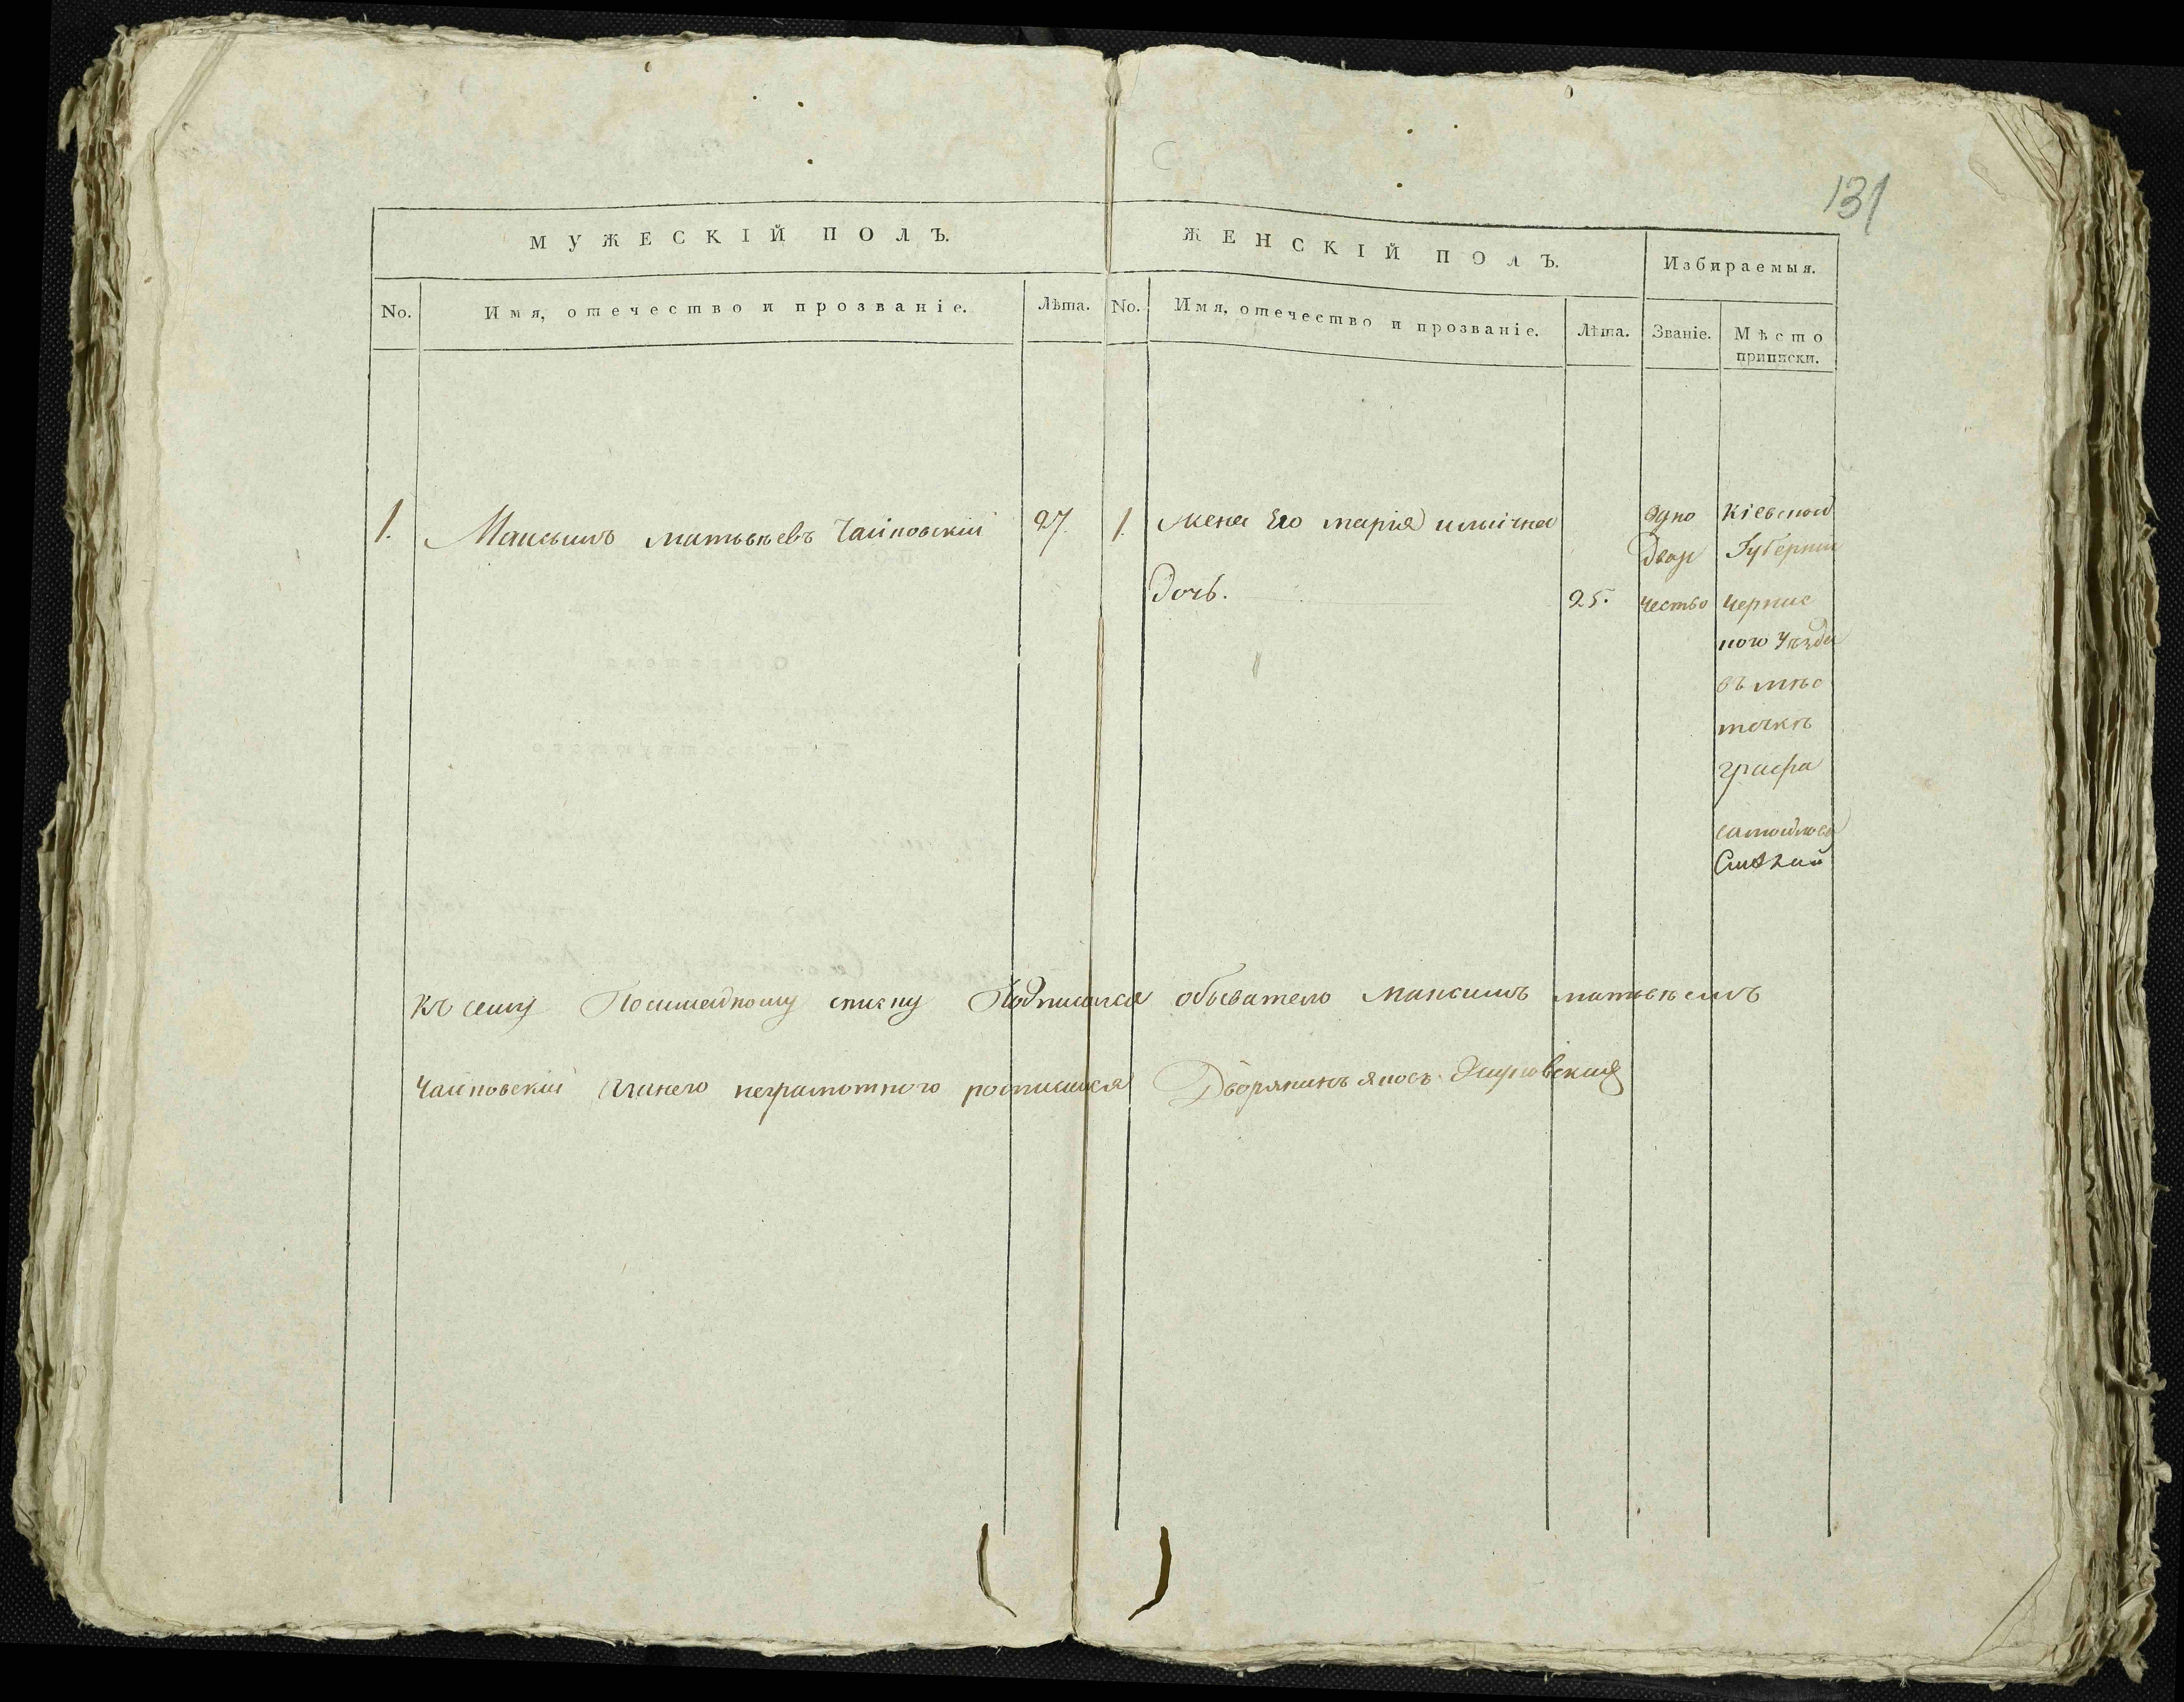 131
МУЖЕСКІЙ ПОЛЪ.
ЖЕНСКІЙ ПОЛЪ.
Избираемыя.
No.
Имя, отечество и прозваніе.
Лѣта.
No.
Имя, отечество и прозваніе.
Лѣта.
Званіе.
Мѣсто
приписки.
1. Максимъ матьвѣевъ Чайковскій 27.
1. жена Его марія
Дочь. 25.
Одно
Двор
чество
Кіевской
Губерніи
Черкас
кого Уѣзда
въ мѣс
течкѣ
графа
самойлова
Смѣлой
къ сему Посимейному списку Подписался обыватель Максимъ матьвѣевъ
Чайковскій неграмотного росписался Дворянинъ